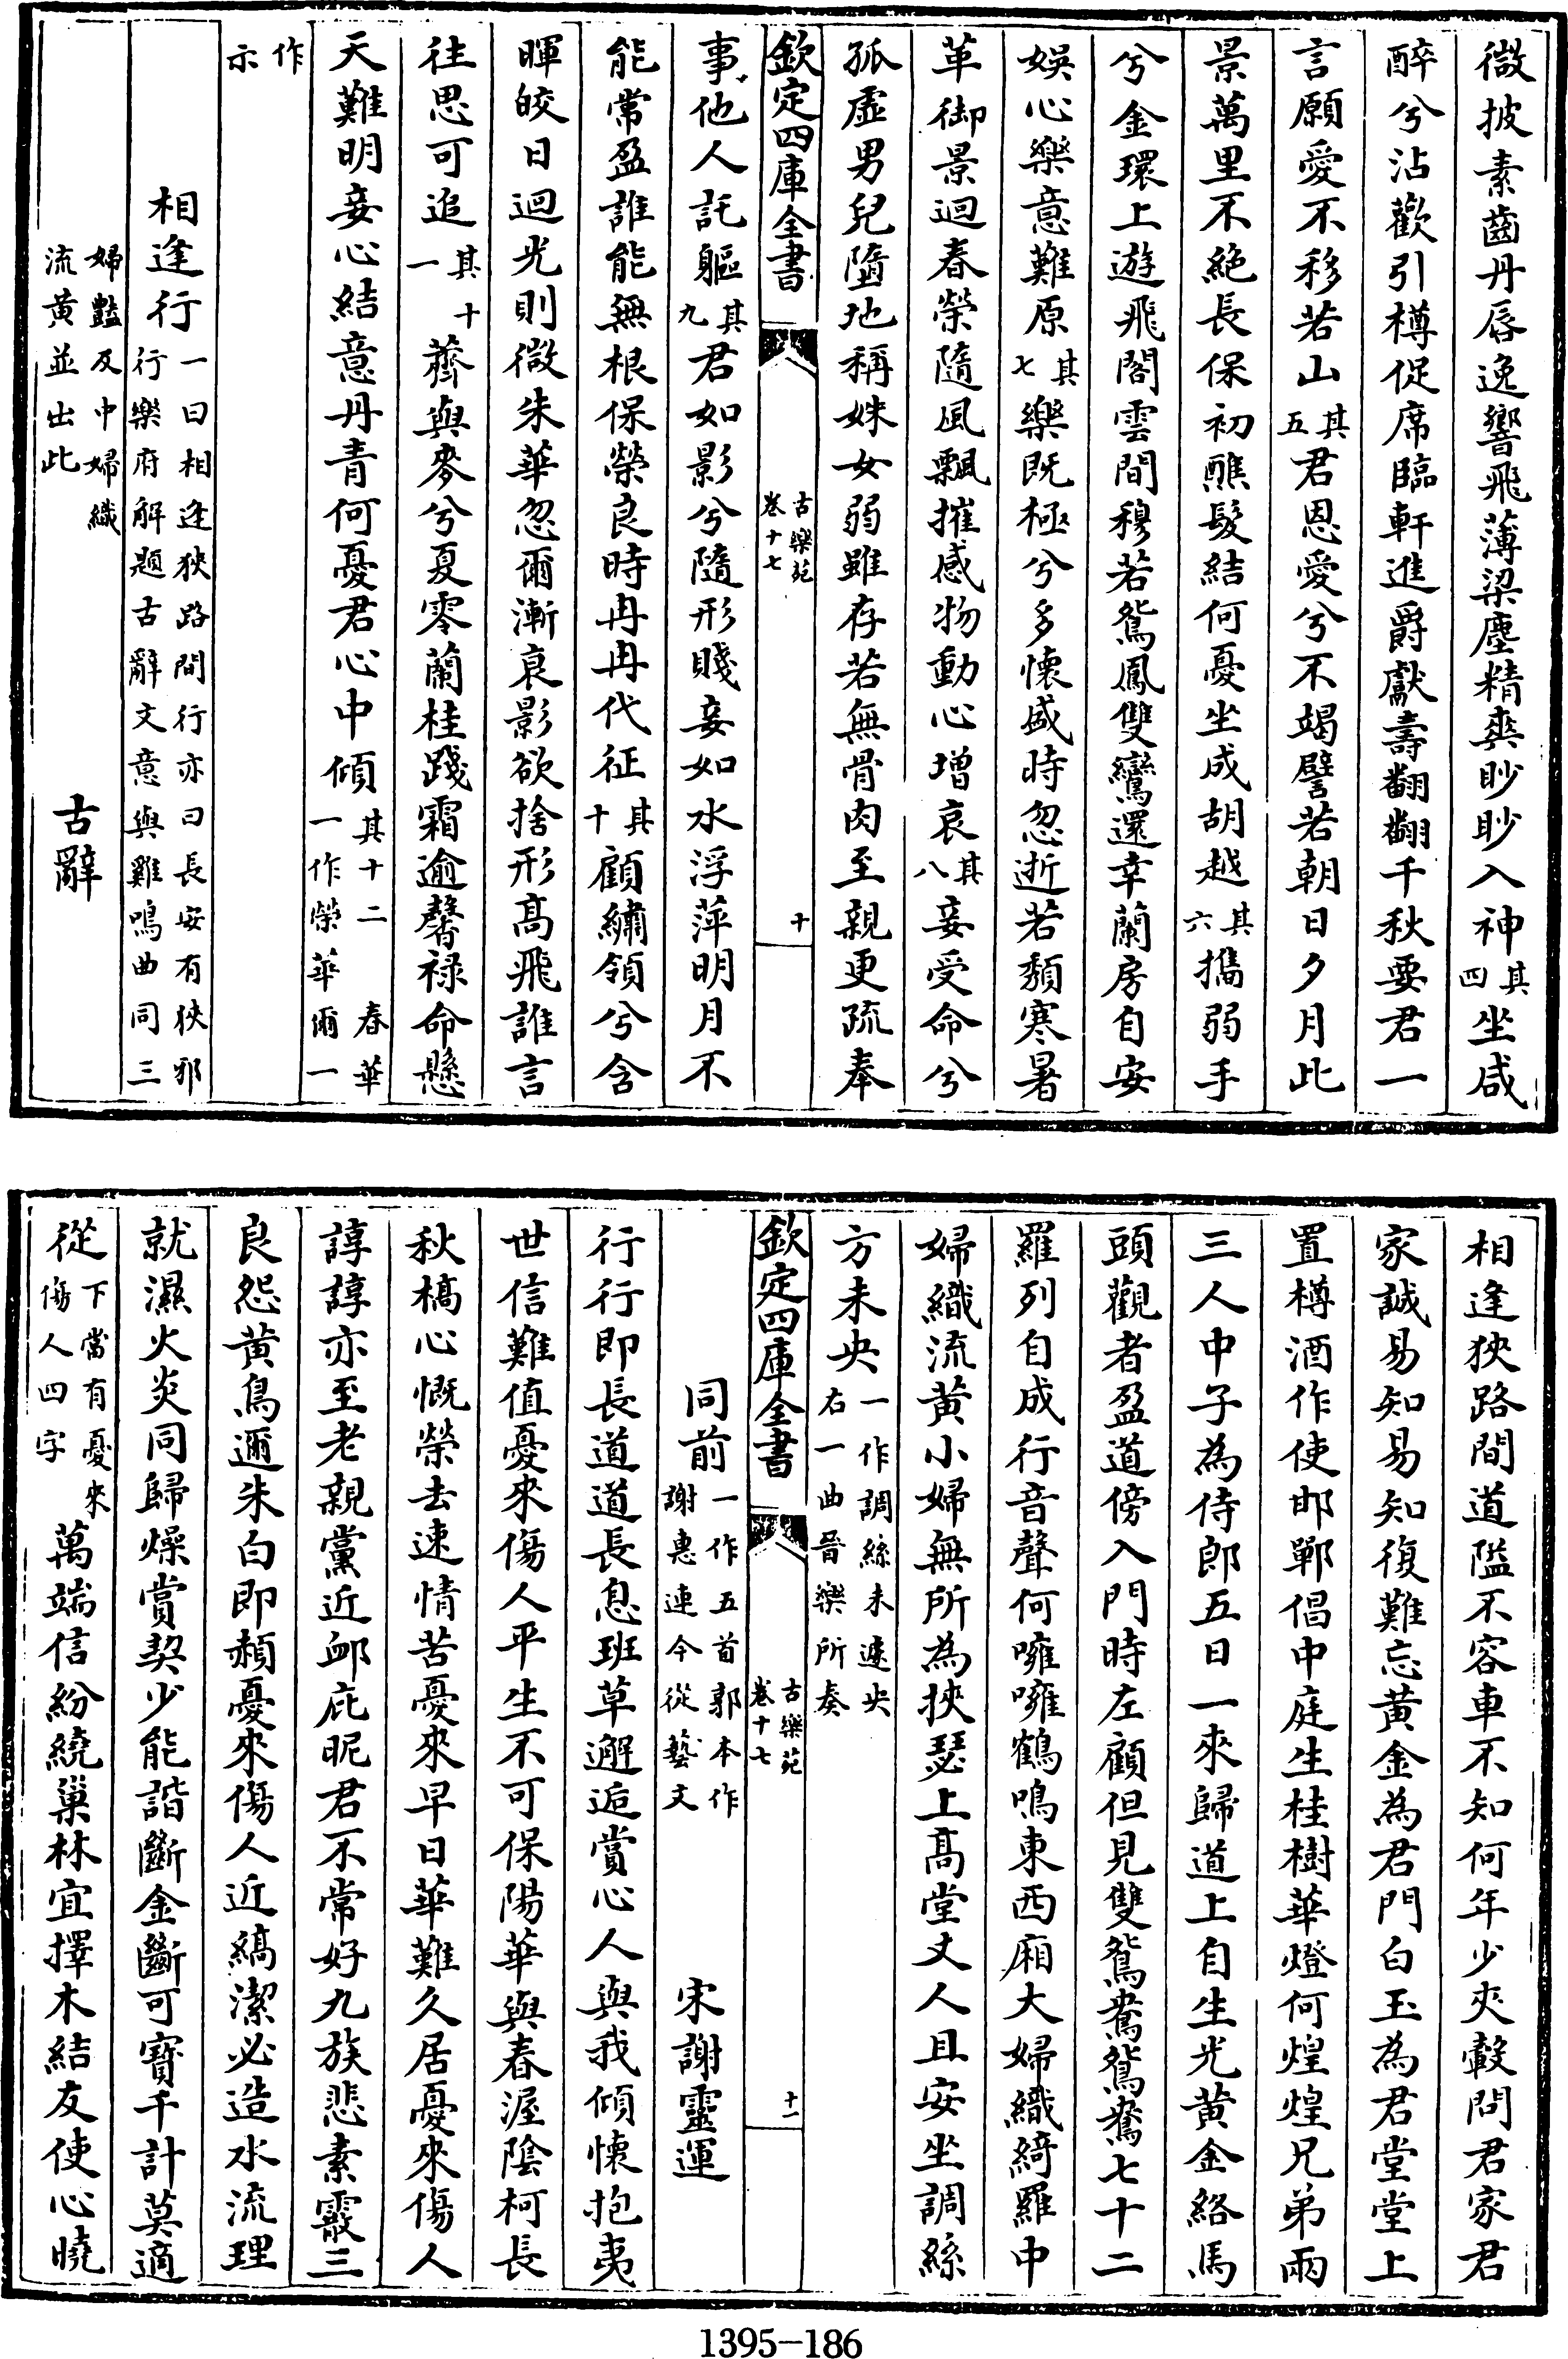 微披素齒丹唇逸響飛薄梁塵精爽眇眇入神其四坐咸
醉兮沾歡引樽促席臨軒進爵獻壽翻翻千秋要君一
言願愛不移若山其五君恩愛兮不竭譬若朝日夕月此
景萬里不絶長保初醮髮結何憂坐成胡越其六攜弱手
兮金環上遊飛閣雲間穆若鴛鳳雙鸞還幸蘭房自安
娛心樂意難原其七樂既極兮多懷盛時忽逝若頽寒暑
革御景迴春榮隨風飄摧感物動心增哀其八妾受命兮
孤虛男兒墮地稱姝女弱雖存若無骨肉至親更疏奉
欽定四庫全書 古樂苑卷十七 十
事他人託軀其九君如影兮隨形賤妾如水浮萍明月不
能常盈誰能無根保榮良時冉冉代征其十顧繡領兮含
暉皎日迴光則微朱華忽爾漸衰影欲捨形高飛誰言
往思可追其十一薺與麥兮夏零蘭桂踐霜逾馨祿命懸
天難明妾心結意丹青何憂君心中傾其十二 春華一作榮華爾一
作示
相逢行一曰相逢狹路間行亦曰長安有狹邪行樂府解題古辭文意與雞鳴曲同三
婦豔及中婦織流黃並出此 古辭
相逢狹路間道隘不容車不知何年少夾轂問君家君
家誠易知易知復難忘黃金為君門白玉為君堂堂上
置樽酒作使邯鄲倡中庭生桂樹華燈何煌煌兄弟兩
三人中子為侍郎五日一來歸道上自生光黃金絡馬
頭觀者盈道傍入門時左顧但見雙鴛鴦鴛鴦七十二
羅列自成行音聲何噰噰鶴鳴東西廂大婦織綺羅中
婦織流黃小婦無所為挾瑟上高堂丈人且安坐調絲
方未央一作調絲未遽央右一曲晉樂所奏
欽定四庫全書 古樂苑卷十七 十一
同前一作五首郭本作謝惠連今從藝文 宋謝靈運
行行即長道道長息班草邂逅賞心人與我傾懷抱夷
世信難值憂來傷人平生不可保陽華與春渥陰柯長
秋槁心慨榮去速情苦憂來早日華難久居憂來傷人
諄諄亦至老親黨近卹庇昵君不常好九族悲素霰三
良怨黃鳥邇朱白即赬憂來傷人近縞潔必造水流理
就濕火炎同歸燥賞契少能諧斷金斷可寶千計莫適
從下當有憂來傷人四字萬端信紛繞巢林宜擇木結友使心曉
1395-186